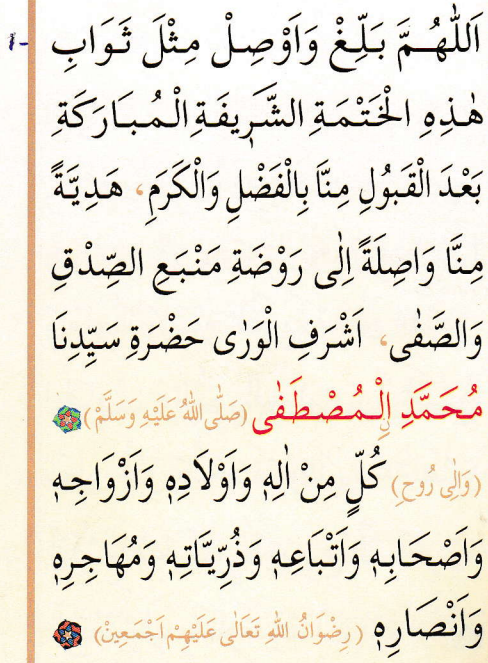 اَللّٰهُمَّ بَلِّغْ وَاَوْصِلْ مِثْلَ ثَوَابِ
هٰذِهِ الْخَتْمَةِ الشَّرِيفَةِ الْمُبَارَكَةِ
بَعْدَ الْقَبُولِ مِنَّا بِالْفَضْلِ وَالْكَرَمِ، هَدِيَّةً
مِنَّا وَاصِلَةً اِلٰى رَوْضَةِ مَنْبَعِ الصِّدْقِ
وَالصَّفٰى، اَشْرَفِ الْوَرٰى حَضْرَةِ سَيِّدِنَا
مُحَمَّدٍ اِلْمُصْطَفٰى (صَلَّى اللهُ عَلَيْهِ وَسَلَّمَْ)
(وَاِلٰى رُوحِ) كُلٍّ مِنْ اٰلِهٖ وَاَوْلَادِهٖ وَاَزْوَاجِهٖ
وَاَصْحَابِهٖ وَاَتْبَاعِهٖ وَذُرِّيَّاتِهٖ وَمُهَاجِرِهٖ
وَاَنْصَارِهٖ (رِضْوَانُ اللهِ تَعَالٰى عَلَيْهِمْ اَجْمَعِينْ)